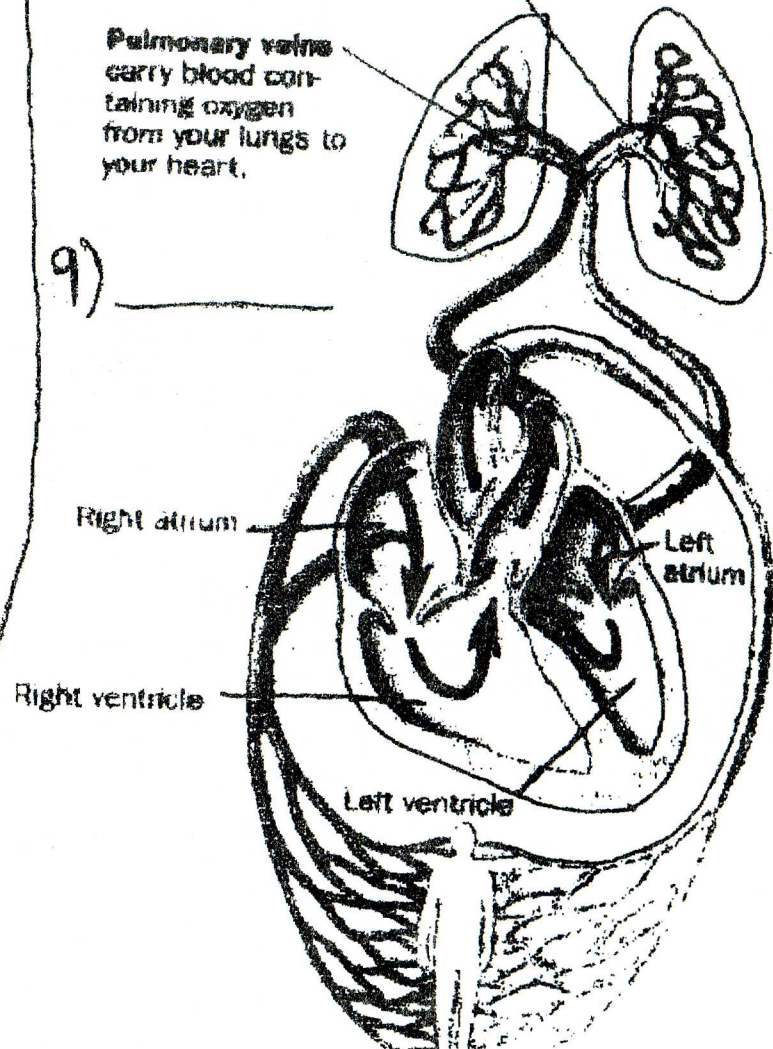 Pulmonary veins
carry blood con-
taining oxygen
from your lungs to
your heart.
9)
Right atrium
Left
atrium
Right ventricle
Left ventricle